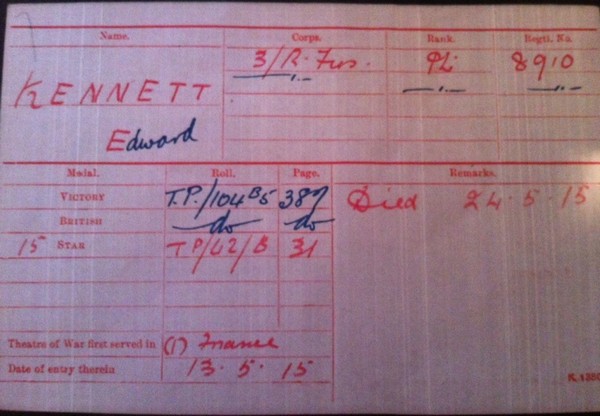 Name. Corps. Rank. Regtl. No.
KENNETT 3/R. Fus. Pt. 8910
Edward
Medal. Roll. Page. Remarks.
VICTORY T.P./104 B5 387 Died 24.5.15
BRITISH do do
15 STAR TP/42/B 31
Theatre of War first served in (1) France
Date of entry therein 13.5.15